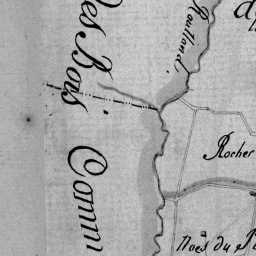 des Bois Comm
Roulland.
Rocher
Noës du